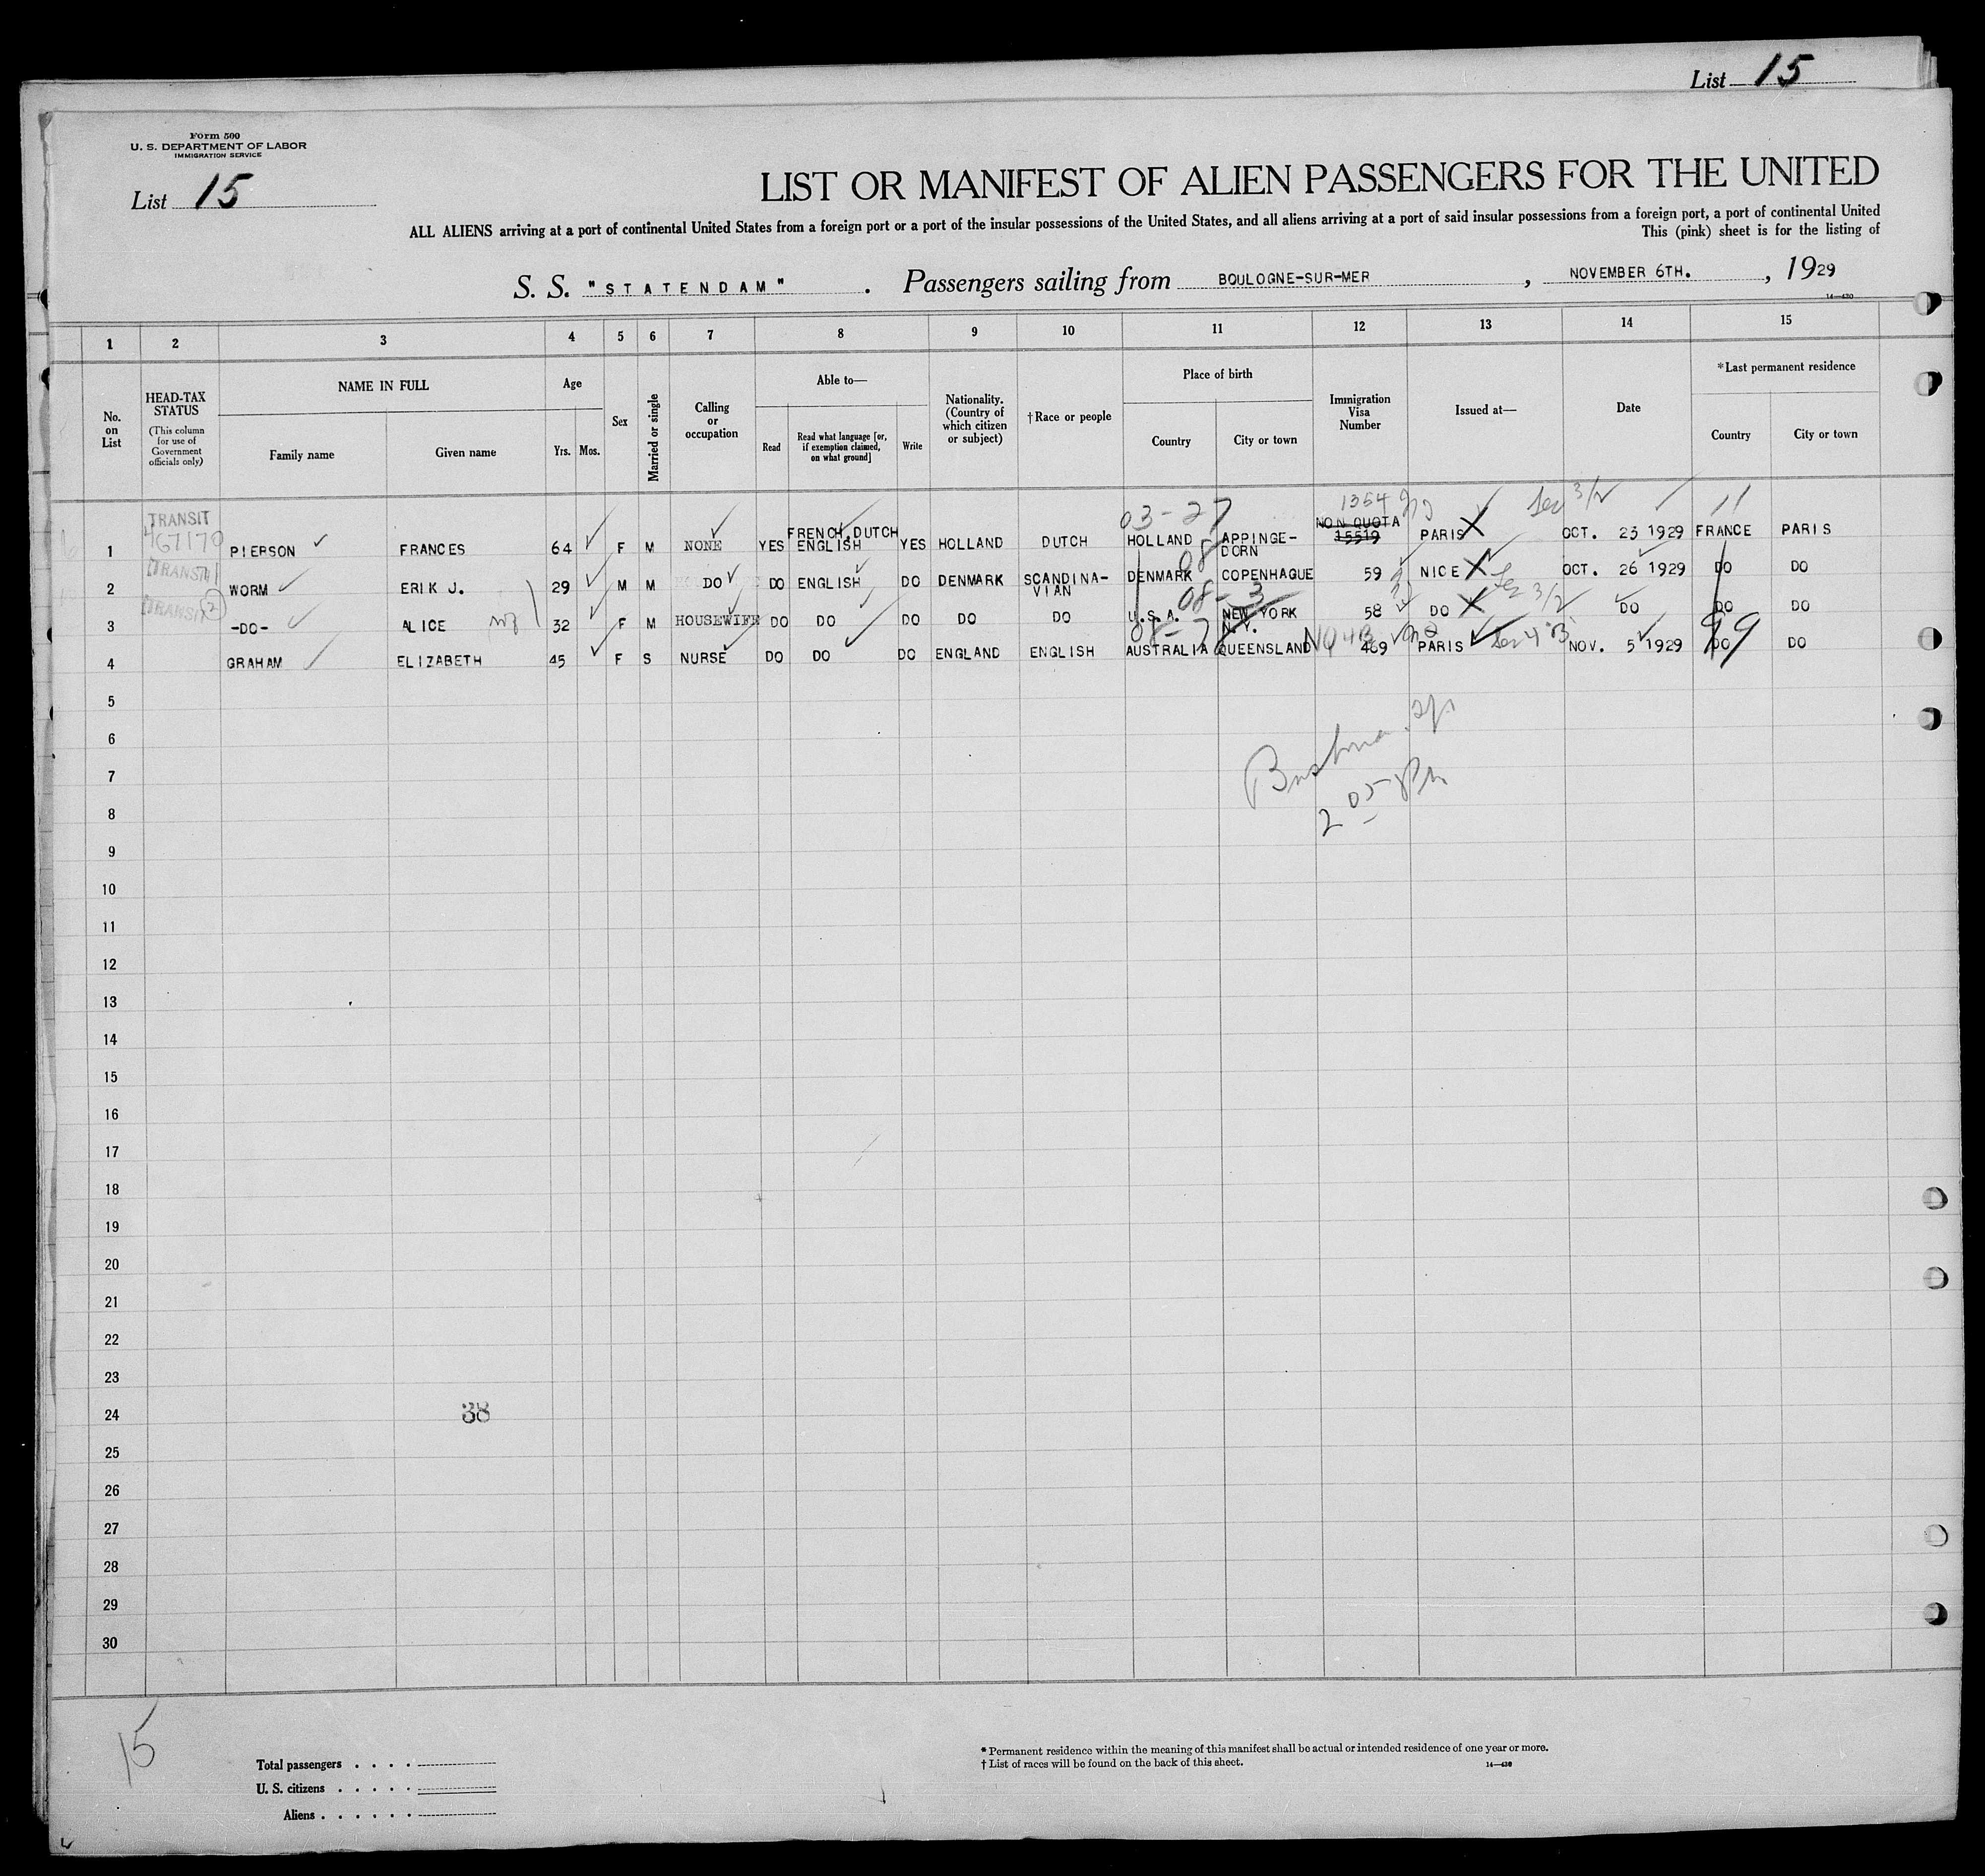 List 15
Form 500
U. S. DEPARTMENT OF LABOR
IMMIGRATION SERVICE
List 15
LIST OR MANIFEST OF ALIEN PASSENGERS FOR THE UNITED
ALL ALIENS arriving at a port of continental United States from a foreign port or a port of the insular possessions of the United States, and all aliens arriving at a port of said insular possessions from a foreign port, a port of continental United
This (pink) sheet is for the listing of
S. S. "STATENDAM". Passengers sailing from BOULOGNE-SUR-MER, NOVEMBER 6TH., 1929
14—430
1 2 3 4 5 6 7 8 9 10 11 12 13 14 15
No. on List
HEAD-TAX STATUS
(This column for use of Government officials only)
NAME IN FULL
Family name Given name
Age
Yrs. Mos.
Sex
Married or single
Calling or occupation
Able to—
Read
Read what language [or, if exemption claimed, on what ground]
Write
Nationality. (Country of which citizen or subject)
†Race or people
Place of birth
Country City or town
Immigration Visa Number
Issued at—
Date
*Last permanent residence
Country City or town
TRANSIT 03-27 1354 Sec 3/2
1 PIERSON FRANCES 64 F M NONE YES FRENCH, DUTCH ENGLISH YES HOLLAND DUTCH HOLLAND APPINGE-DORN NON QUOTA 15519 PARIS OCT. 23 1929 FRANCE PARIS
TRANSIT 08
2 WORM ERIK J. 29 M M DO DO ENGLISH DO DENMARK SCANDINA-VIAN DENMARK COPENHAGUE 59 NICE OCT. 26 1929 DO DO
TRANSIT 2 08-3 Sec 3/2
3 -DO- ALICE 32 F M HOUSEWIFE DO DO DO DO DO U.S.A. NEW YORK N.Y. 58 DO DO DO DO
Sec 4 B 99
4 GRAHAM ELIZABETH 45 F S NURSE DO DO DO ENGLAND ENGLISH AUSTRALIA QUEENSLAND 469 PARIS NOV. 5 1929 DO DO
5
6
7
8
9
10
11
12
13
14
15
16
17
18
19
20
21
22
23
24 38
25
26
27
28
29
30
15
Total passengers . . . .
U. S. citizens . . . . .
Aliens . . . . . .
* Permanent residence within the meaning of this manifest shall be actual or intended residence of one year or more.
† List of races will be found on the back of this sheet.
14—430